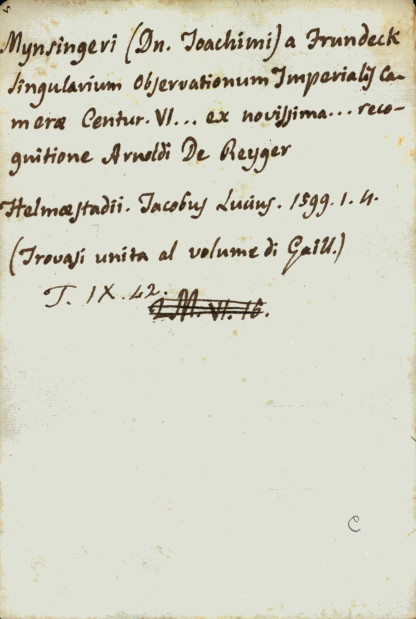 5
Mynsingeri (Dn. Joachimi) a Frundeck
singularium Observationum Imperialis Ca-
meræ Centur. VI... ex novissima... reco-
gnitione Arnoldi De Reyger
Helmæstadii. Jacobus Lucius. 1599. 1. 4.
(Trovasi unita al volume di Gaill.)
T. IX. 42.
2 M. VI. 16.
C